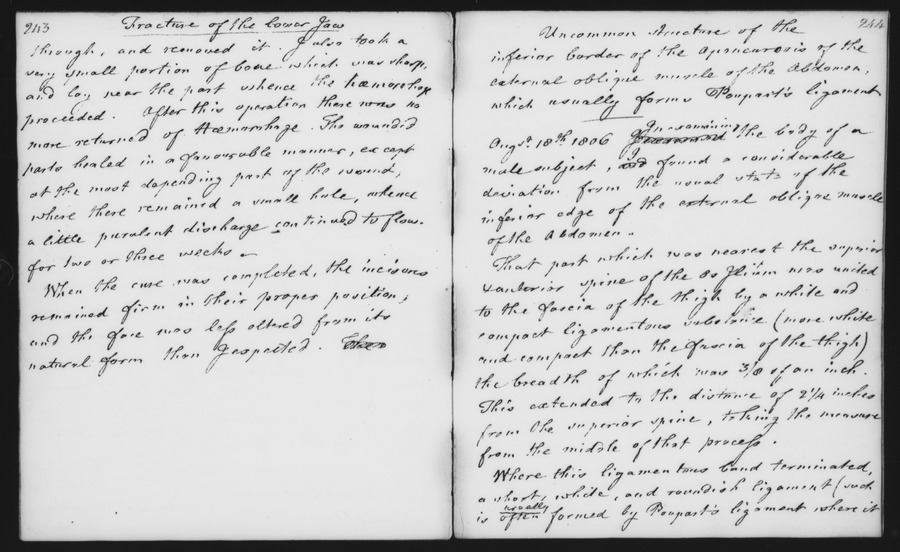 243
Fracture of the lower Jaw
through, and removed it. I also took a
very small portion of bone which was sharp,
and lay near the part whence the hæmorrhage
proceeded. After this operation there was no
more returned of Hæmorrhage. The wounded
parts healed in a favourable manner, except
at the most depending part of the wound,
where there remained a small hole, whence
a little purulent discharge continued to flow
for two or three weeks.
When the cure was completed, the incisores
remained firm in their proper position;
and the face was less altered from its
natural form than I expected.
244
Uncommon structure of the
inferior border of the Aponeurosis of the
external oblique muscle of the Abdomen,
which usually forms Poupart's ligament
In examining
Augt. 18th. 1806 I examined the body of a
male subject, I and found a considerable
deviation from the usual state of the
inferior edge of the external oblique muscle
of the Abdomen.
That part which was nearest the superior
& anterior spine of the Os Ilium was united
to the fascia of the thigh by a white and
compact ligamentous substance (more white
and compact than the fascia of the thigh)
the breadth of which was 3/8 of an inch.
This extended to the distance of 2 1/4 inches
from the superior spine, taking the measure
from the middle of that process.
Where this ligamentous band terminated,
a short, white, and roundish ligament (such
usually
is often formed by Poupart's ligament where it